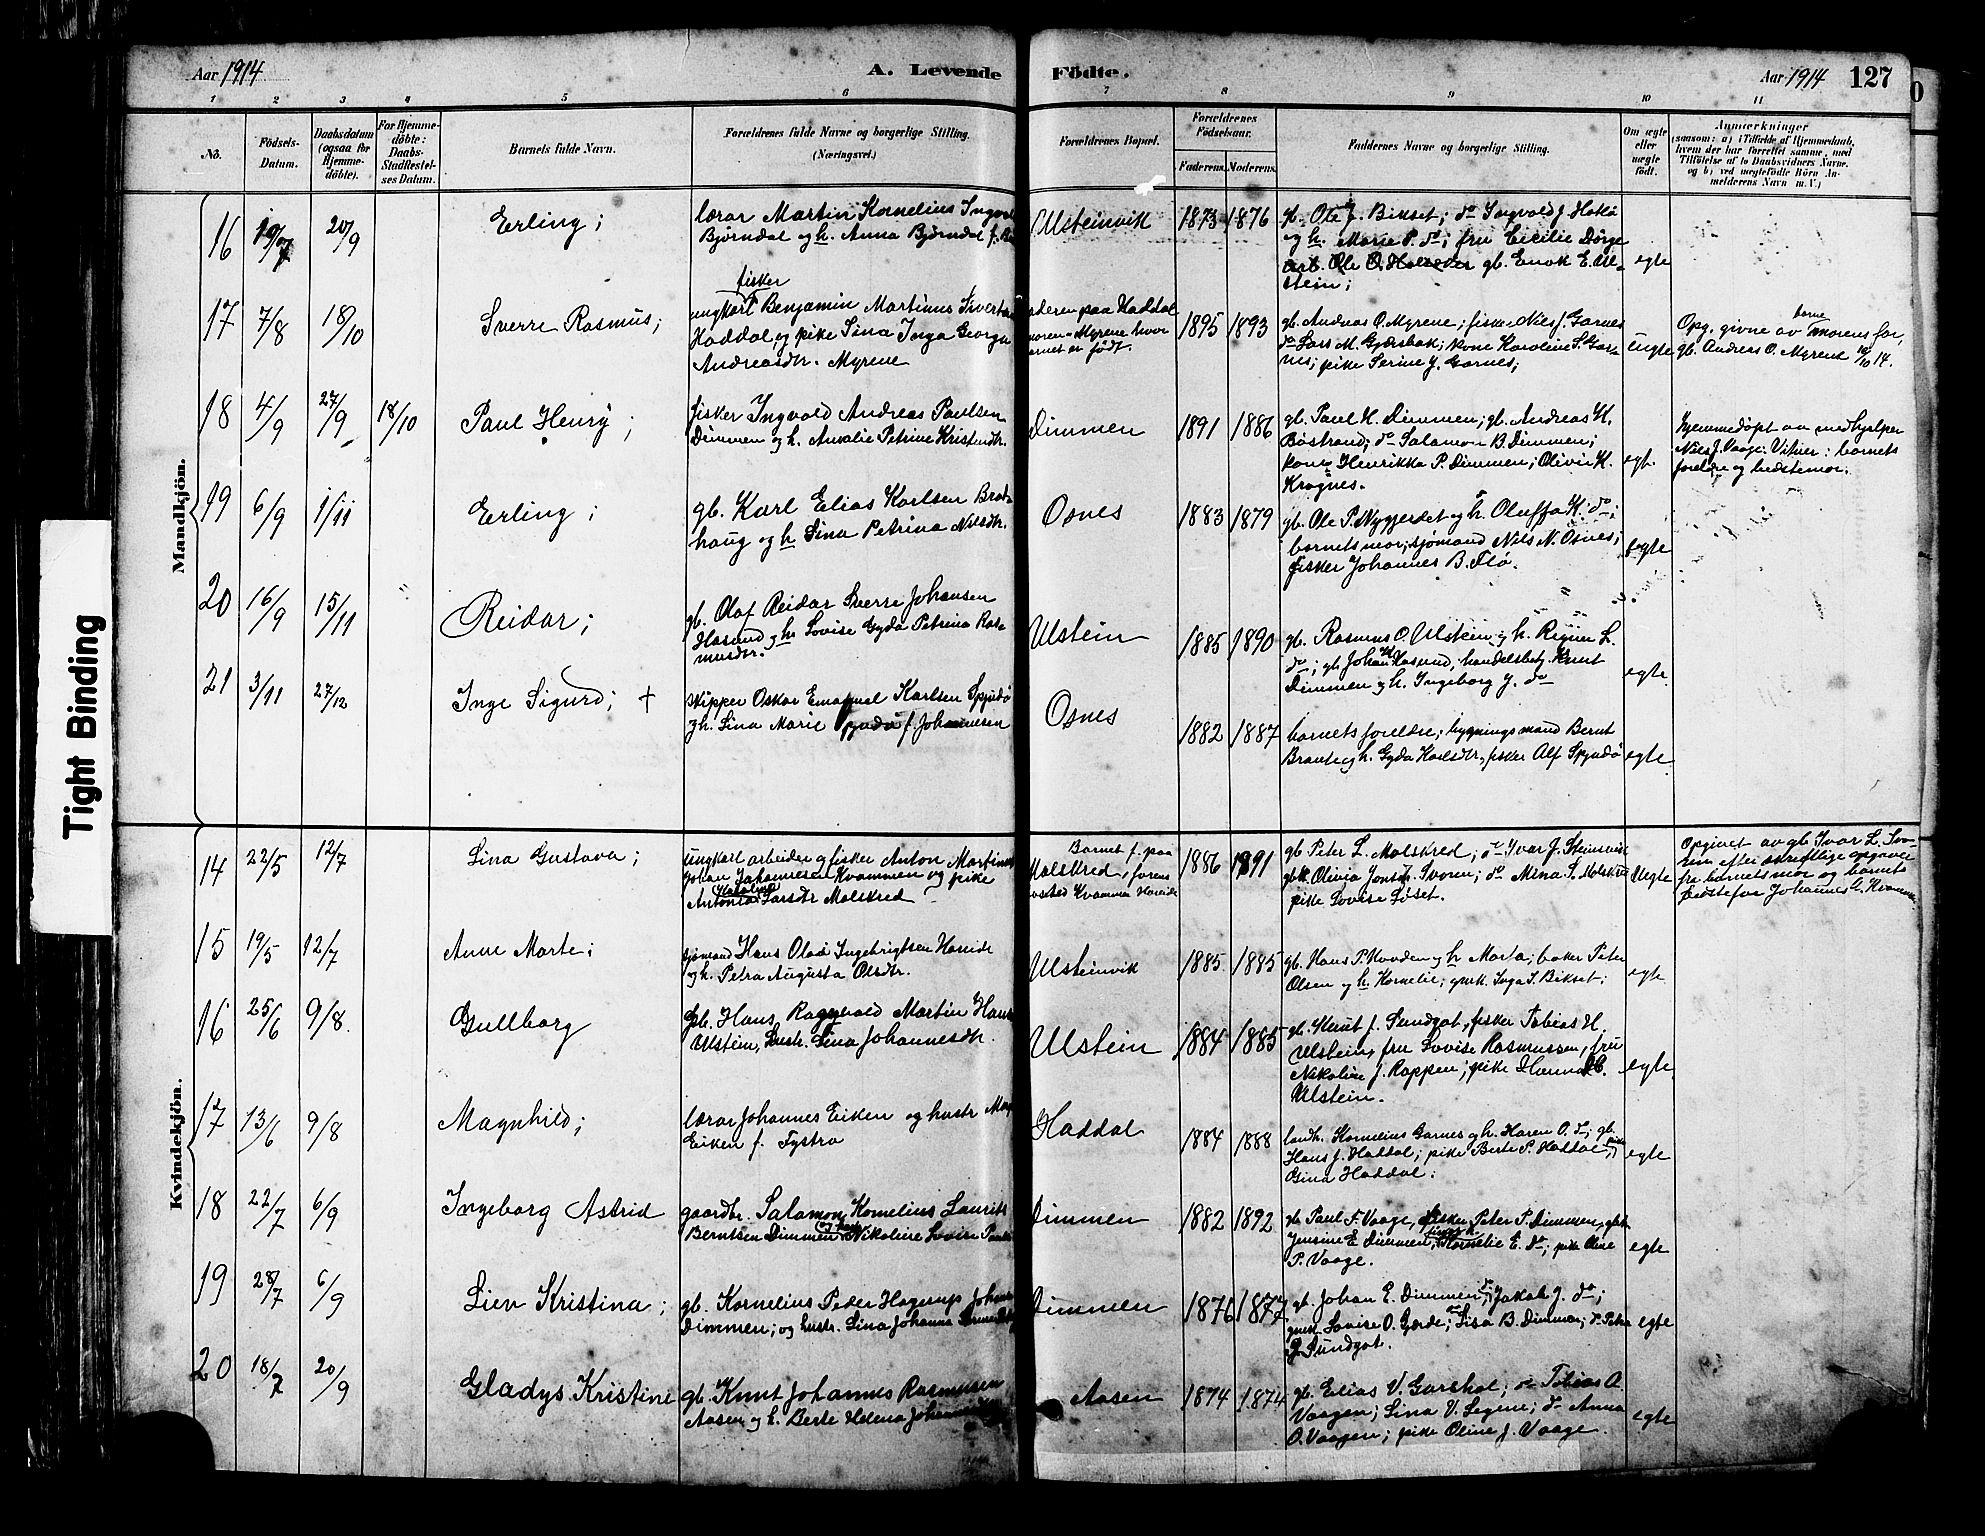 Aar 1914
A. Levende
Födte.
Aar 1914
127
1 2 3 4 5 6 7 8 9 10 11
No.
Födsels-
Datum.
Daabsdatum
(ogsaa for
Hjemme-
döbte).
For Hjemme-
döbte:
Daabs-
Stadfæstel-
ses Datum.
Barnets fulde Navn.
Forældrenes fulde Navne og borgerlige Stilling.
(Næringsvei.)
Forældrenes Bopæl.
Forældrenes
Födselsaar.
Faderens. Moderens.
Faddernes Navne og borgerlige Stilling.
Om ægte
eller
uægte
födt.
Anmærkninger
(saasom: a) i Tilfælde af Hjemmedaab,
hvem der har forrettet samme, med
Tilföielse af to Daabsvidners Navne.
og b) ved uægtefödte Börn An-
melderens Navn m.V.)
Mandkjön.
16 19/7 20/9
Erling;
lærar Martin Kornelius
Bjørndal og h. Anna Bjørndal f.
Ulsteinvik
1873 1876
gb. Ole J. Bikset; do Ingvald J.
og h. Marie P. do; fru Cecilie
gb. Enok E. Ul-
stein;
egte
17 7/8 18/10
Sverre Rasmus;
fisker
ungkarl Benjamin Martinus
Haddal, og pike Sina Inga
Andreasdtr. Myrene
paa Haddal
Myrene hvor
er født.
1895 1893
gb. Andreas O. Myrene; fisker Nils J. Garnes
do Lars M. Gjærsbak; kone Karoline S. Gar-
nes; pike Serine J. Garnes;
uegte
Opg. givne av barne morens far,
gb. Andreas O. Myrene 18/10 14.
18 4/9 27/9 18/10
Paul Henry;
fisker Ingvald Andreas Paulsen
Dimmen og h. Amalie Petrine
Dimmen
1891 1886
gb. Paul K. Dimmen; gb. Andreas K.
Bøstrand; do Salamon B. Dimmen;
kone Henrikka P. Dimmen; K.
Krognes.
egt.
Hjemmedøpt av medhjelper
Nils J. Vaage. Vitner: barnets
foreldre og bedstemor.
19 6/9 1/11
Erling;
gb. Karl Elias Karlsen
haug og h Sina Petrina Nilsdtr.
Osnes
1883 1879
gb. Ole P. Nygjerdet og h. Oluffa K. do;
barnets mor; sjømand Nils N. Osnes;
fisker Johannes B. Flø.
egte
20 16/9 15/11
Reidar;
gb. Olaf Reidar Sverre Johansen
Hasund og h. Lovise Gyda Petrina Ras-
musdtr.
Ulstein
1885 1890
gb. Rasmus O. Ulstein og h. L.
do; gb. Johan Hasund, handelsbetj. Knut
Dimmen og h. Ingeborg J. do
egte.
21 3/11 27/12
Inge Sigurd; +
skipper Oskar Emanuel Karlsen Spjudø
og h. Lina Marie Spjudø f. Johannesen
Osnes
1882 1887
barnets foreldre; bygningsmand Bernt
og h. Gyda fisker Alf Spjudø
egte.
Kvindekjön.
14 22/5 12/7
Lina Gustava;
ungkarl arbeider og fisker Anton Martinus
Johan Johannesen Kvammen og pike
Antonia Larsdtr Molskred
Barnet f. paa
Molskred, farens
Kvammen Hareide
1886 1891
gb. Peter L. Molskred; do Ivar J. Steinsvik
Olivia Svoren; do Mina S. Molskred
pike Lovise Løset.
uegte
Opgivet av gb Ivar L. Svo-
ren efter skriftlige opgaver
fra barnets mor og barnets
Johannes G. Kvammen
15 19/5 12/7
Anne Marte;
sjømand Hans Olai Ingebrigtsen Hareide
og h. Petra Augusta Olsdtr.
Ulsteinvik
1885 1885
gb. Hans P. og h Marta; baker Peter
Olsen og h. Kornelie; Inga I. Bikset;
egte
16 25/6 9/8
Gullborg
gb. Hans Ragnvald Martin
Ulstein, hustr. Lina Johannesdtr.
Ulstein
1884 1885
gb. Knut J. Sundgot, fisker Tobias H.
Ulstein, fru Lovise Rasmussen, fru
Nikoline J. Rappen; pike Hanna
Ulstein.
egte
17 13/6 9/8
Magnhild;
lærar Johannes Eiken og hustr
Eiken f. Tystra
Haddal
1884 1888
landh. Kornelius Garnes og h. Karen O. do; gb.
Hans J. Haddal; pike Berte P. Haddal; pike
Gina Haddal.
egte
18 22/7 6/9
Ingeborg Astrid
gaardbr. Salamon Kornelius Laurits
Berntsen Dimmen Nikoline Lovise
Dimmen
1882 1892
gb. Paul F. Vaage, fisker Peter P. Dimmen,
Jensine E. Dimmen, Kornelie E. do; pike
P. Vaage.
egte
19 28/7 6/9
Liev Kristina;
gb. Kornelius Peder Hagerup
Dimmen; og hustr. Lina Johanna
Dimmen
1876 1877
gb. Johan E. Dimmen, do Jakob J. do;
Lovise O. Gjerde; Lisa B. Dimmen; do
Sundgot.
egte
20 18/7 20/9
Gladys Kristine
gb. Knut Johannes Rasmusen
Aasen og h. Berte Helena
Aasen
1874 1874
gb. Elias V. Garshol; do Tobias A.
Vaagen; Lina V. Segene; do Anna
O. Vaagen; pike Oline J. Vaage.
egte
Tight Binding